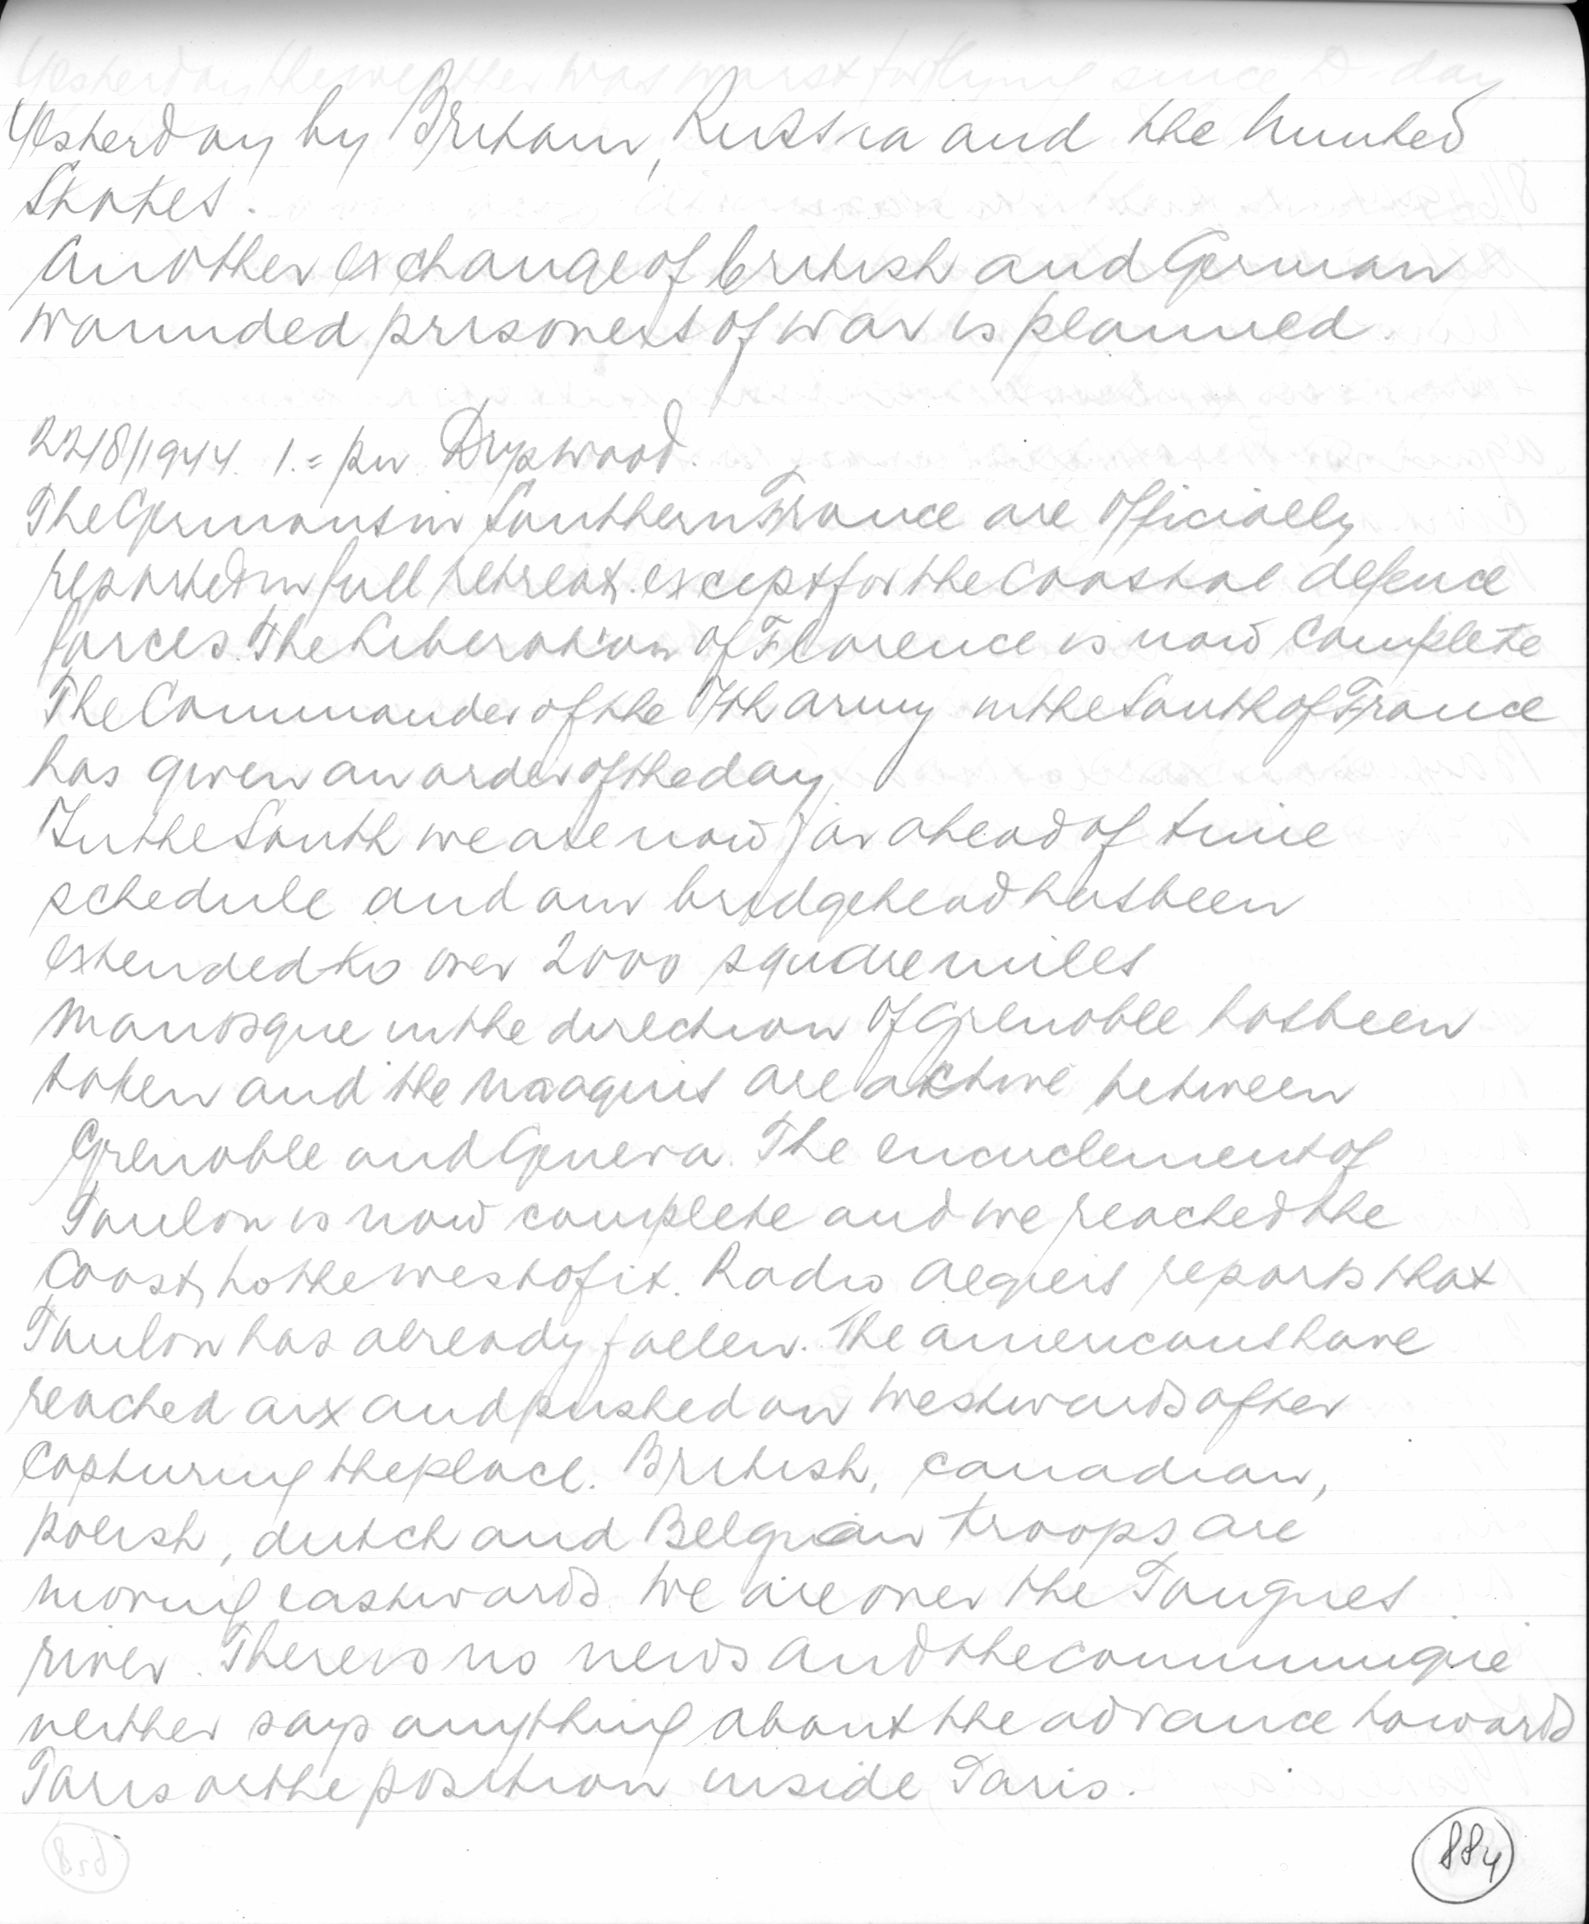 Yesterday the weather was worst for flying since D-day
Yesterday by Britain, Russia and the United
States.
Another exchange of british and German
wounded prisoners of war is planned.
22/8/1944. 1.= pm
The Germans in Southern France are officially
reported in full retreat. except for the coastal defence
forces. The Liberation of Florence is now complete
The Commander of the 7th army in the South of France
has given an order of the day
In the South we are now far ahead of time
schedule and our bridgehead has been
extended to over 2000 square miles
Manosque in the direction of Grenoble has been
taken and the Maaquis are active between
Grenoble and Geneva. The encirclement of
Toulon is now complete and we reached the
Coast, to the west of it. Radio Algiers reports that
Toulon has already fallen. The americans have
reached aix and pushed on westwards after
capturing the place. British, canadian,
polish, dutch and Belgian troops are
moving eastwards. We are over the Touques
river. There is no news and the communiqué
neither says anything about the advance towards
Paris or the position inside Paris.
884